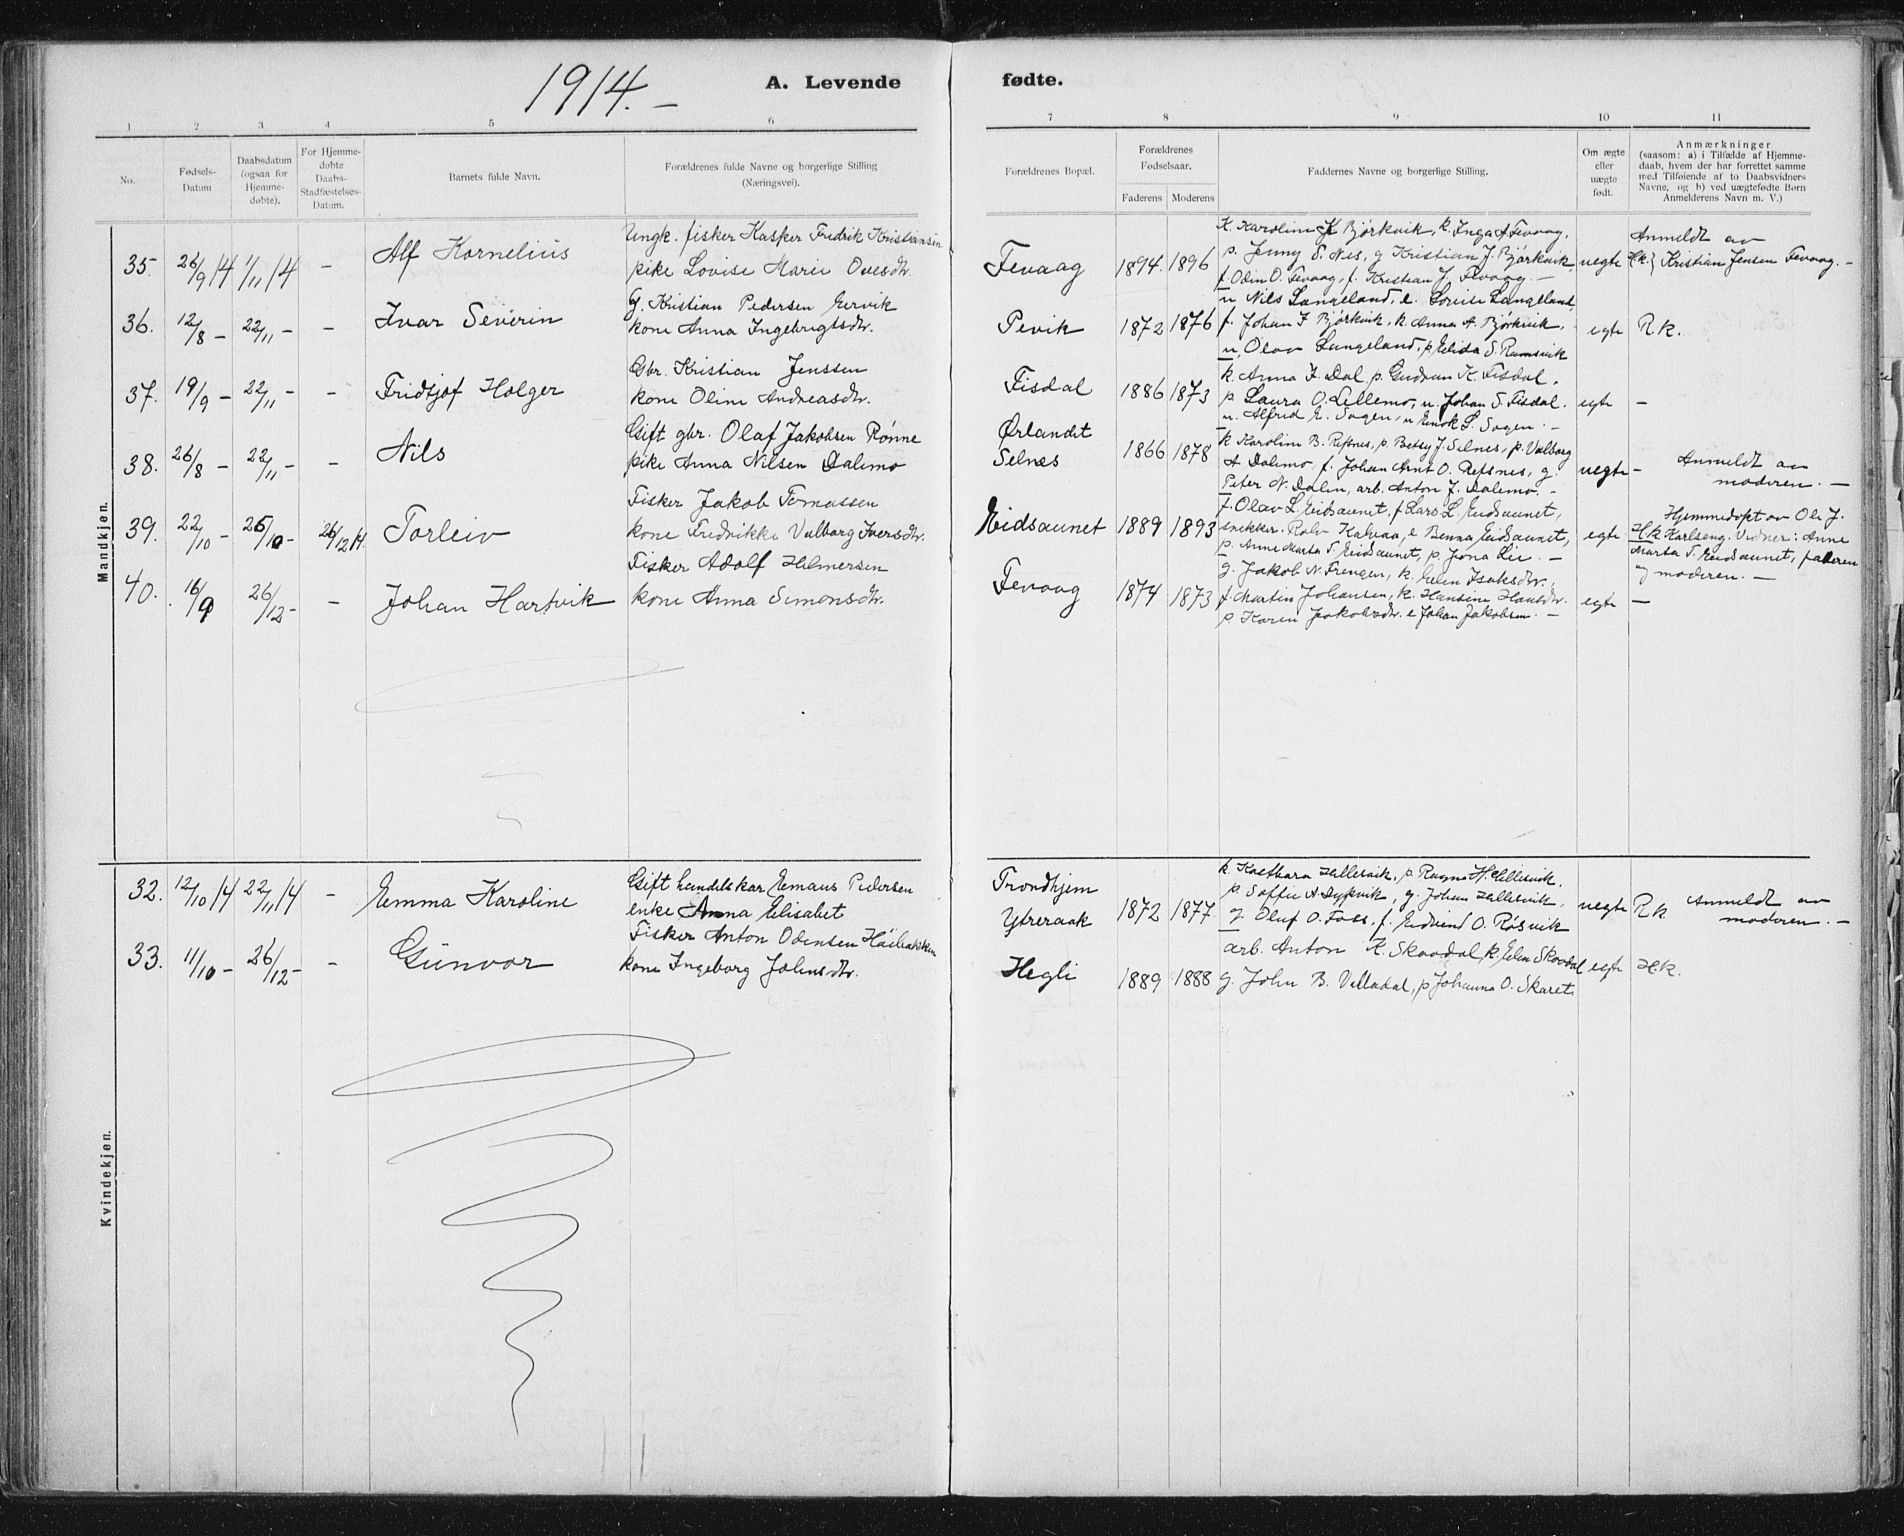 1914.–
A. Levende fødte.
1 2 3 4 5 6 7 8 9 10 11
No.
Fødsels-
Datum
Daabsdatum
(ogsaa for
Hjemme-
døbte).
For Hjemme-
døbte
Daabs-
Stadfæstelses-
Datum.
Barnets fulde Navn.
Forældrenes fulde Navne og borgerlige Stilling
(Næringsvei).
Forældrenes Bopæl.
Forældrenes
Fødselsaar.
Faderens Moderens
Faddernes Navne og borgerlige Stilling.
Om ægte
eller
uægte
født.
Anmærkninger
(saasom: a) i Tilfælde af Hjemme-
daab, hvem der har forrettet samme
med Tilføiende af to Daabsvidners
Navne, og b) ved uægtefødte Børn
Anmelderens Navn m. V.)
Mandkjøn.
35. 26/9 14 1/11 14 – Alf Kornelius
Ungk. fisker Kasper Fredrik Kristiansen
pike Lovise Marie Ovesdtr.
Fevaag 1894. 1896
K. Karoline K Bjørkvik, k. Inga A Fevaag,
p. Jenny S. Nes, g Kristian J. Bjørkvik,
f. Odin O. Fevaag, f. Kristian J. Fevaag. –
uegte
Anmeldt av
H.k.} Kristian Jensen Fevaag. –
36. 12/8 – 22/11 – – Ivar Severin
G. Kristian Pedersen Ervik
kone Anna Ingebrigtsdtr.
Pevik 1872 1876
u Nils Langeland, e. Lovise Langeland,
f. Johan F Bjørkvik, k. Anna A. Bjørkvik,
u, Olav Langeland, p Elida S. Ramsvik
egte R.k.
37. 19/9 – 22/11 – – Fridtjof Holger
Gbr. Kristian Jenssen
kone Oline Andreasdtr.
Fisdal 1886 1873
k. Anna J. Dal p. Gudrun K. Fisdal,
p Laura O. Lillemo, u. Johan S. Fisdal.
u. Alfred E. Sogen, u Enok L. Sogen. –
egte –
38. 26/8 – 22/11 – – Nils
Gift gbr. Olaf Jakobsen Rønne
pike Anna Nilsen Dalemo
Ørlandet
Selnes 1866 1878
k Karoline B. Refsnes, p. Betsy J. Selnes, p. Valborg
A Dalemo, f. Johan Arnt O. Refsnes, g.
Peter N. Dalen, arb. Anton J. Dalemo. –
uegte –
Anmeldt av
moderen. –
39. 22/10 – 25/10 – 26/12 14. Torleiv
Fisker Jakob Tomassen
kone Fredrikke Valborg Iversdtr.
Eidsaunet 1889 1893
f. Olav L. Eidsaunet, f Lars L. Eidsaunet,
snekker. Rolv Kalvaa, e Benna Eidsaunet,
p. Anne Marta T. Eidsaunet, p. Jona Lie. –
egte
Hjemmedøpt av Ole J.
H.k Karlseng. Vidner: Anne
Marta T. Eidsaunet, faderen
og moderen. –
40. 16/9 26/12 – – Johan Hartvik
Fisker Adolf Hilmersen
kone Anna Simonsdtr.
Fevaag 1874 1873
g. Jakob N. Frengen, k. Elen Isaksdtr.,
f Martin Johansen, k. Hansine Hansdtr.
p Karen Jakobsdtr. e Johan Jakobsen. –
egte –
Kvindekjøn.
32. 12/10 14 22/11 14 – Emma Karoline
Gift handelskar Emaus Pedersen
enke Anna Elisabet
Trondhjem
Ytreraak 1872 1877
k. Hallesvik, p. Ragna H. Hellesvik,
p. Soffie A Dypvik, g. Johan Hallesvik,
g. Oluf O. Foss, f. Eidvind O. Røsvik
uegte R.k
Anmeldt av
moderen. –
33. 11/10 – 26/12 – – Gunvor
Fisker Anton Odensen Høibakken
kone Ingeborg Johnsdtr.
Hegli 1889 1888
arb. Anton K. Skavdal, k. Elen Skavdal
g. John B. Villadal, p Johanna O. Skaret.
egte H.k.